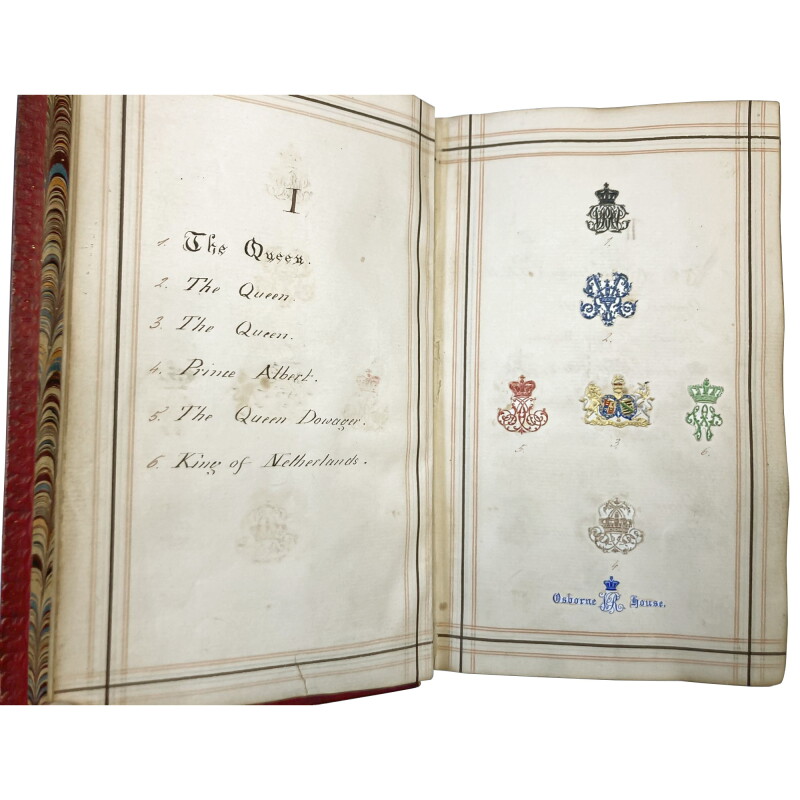 I
1. The Queen.
2. The Queen.
3. The Queen.
4. Prince Albert.
5. The Queen Dowager.
6. King of Netherlands.
1.
2.
5. 3. 6.
4.
Osborne VR House.